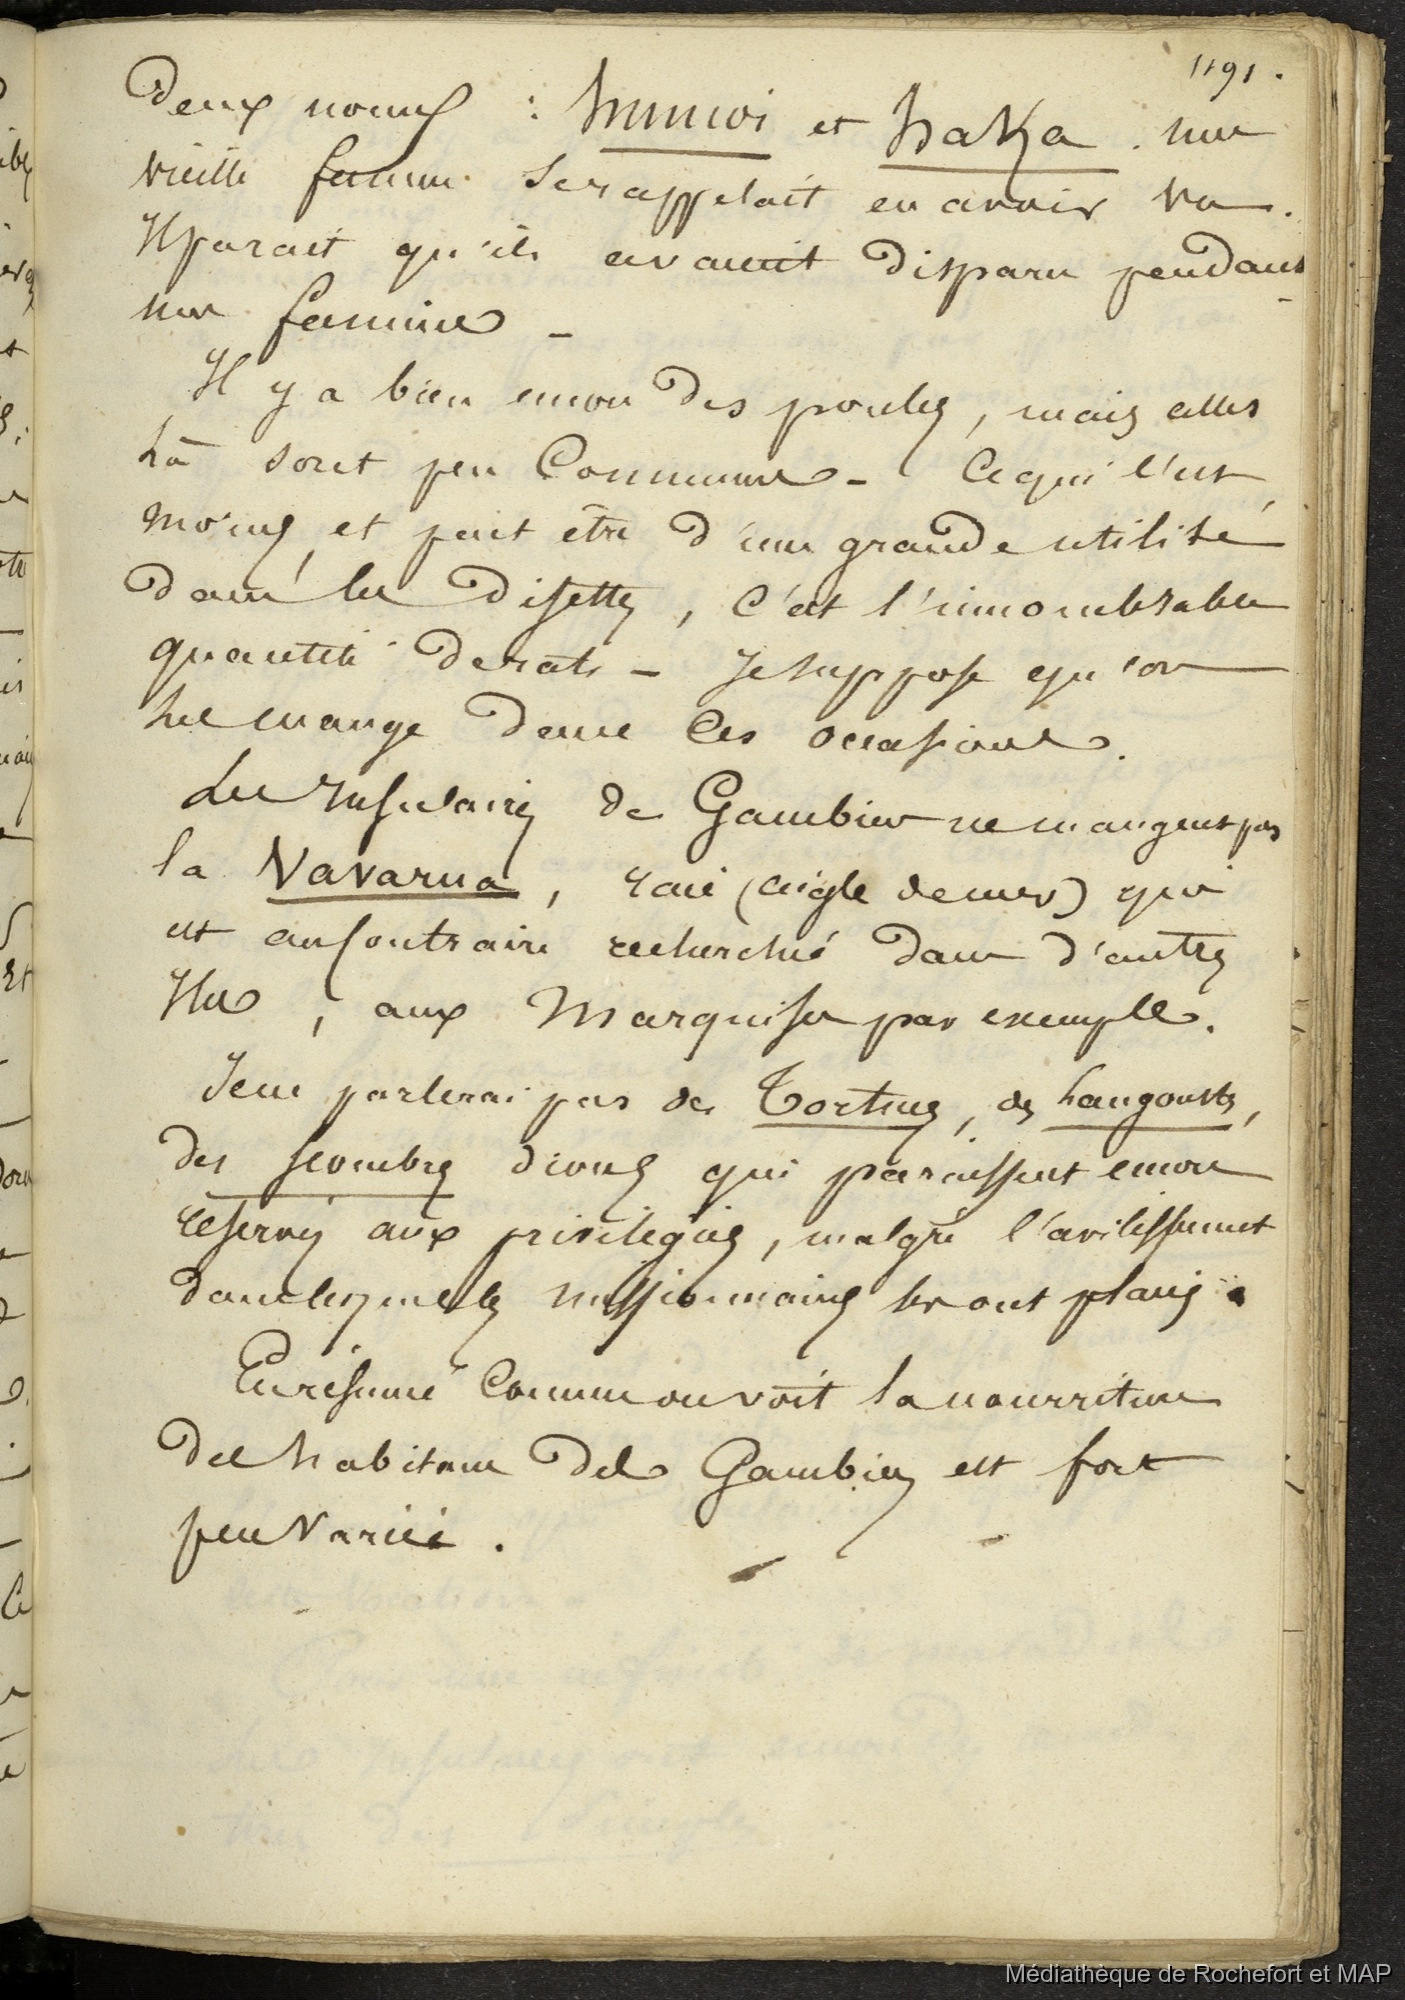 1191.
Deux noms : hunwoi et haKa. une
vieille femme se rappelait en avoir vu.
Il parait qu'ils avaient disparu pendant
une famine _
Il y a bien encore des poules, mais elles
là sont peu Communes _ Ce qui l'est
moins, et peut être d'une grande utilité
dans les disettes, c'est l'innombrable
quantité de rats _ Je suppose qu'on
les mange dans Ces occasions.
Les Insulaires de Gambier ne mangent pas
la Vavarua, raie (aigle de mer) qui
est au Contraire recherchée dans d'autres
Iles, aux Marquises par exemple.
Je ne parlerai pas des Tortues, des Langoustes,
des scombres qui paraissent encore
réservés aux privilégiés, malgré l'avilissement
dans lesquels les missionnaires les ont plongés.
En résumé Comme on voit la nourriture
des habitans des Gambier est fort
peu variée.
Médiathèque de Rochefort et MAP